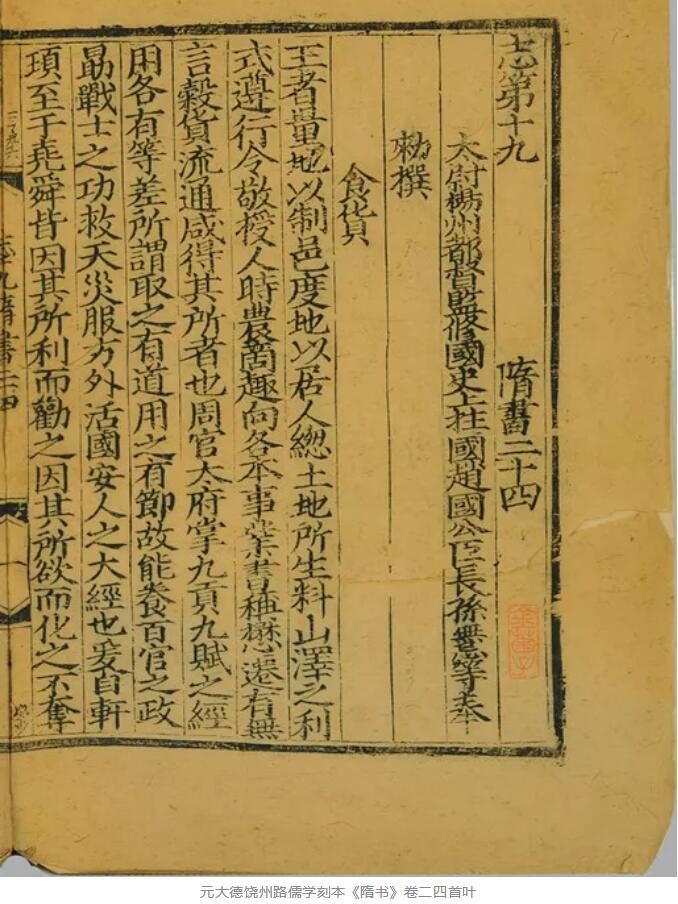 志第十九　隋書二十四
太尉楊州都督監脩國史上柱國趙國公臣長孫無忌等奉
勑撰
食貨
王者量地以制邑度地以居人緫土地所生料山澤之利
式遵行令敬授人時農商趣向各本事業書稱懋遷有無
言穀貨流通咸得其所者也周官大府掌九貢九賦之經
用各有等差所謂取之有道用之有節故能養百官之政
勗戰士之功救天災服方外活國安人之大經也爰自軒
頊至于堯舜皆因其所利而勸之因其所欲而化之不奪
元大德饶州路儒学刻本《隋书》卷二四首叶